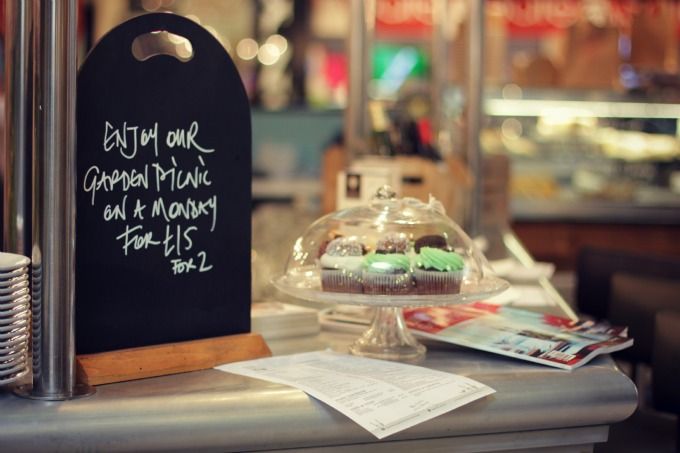 ENJOY OUR
GARDEN PICNIC
ON A MONDAY
FOR £15
FOR 2